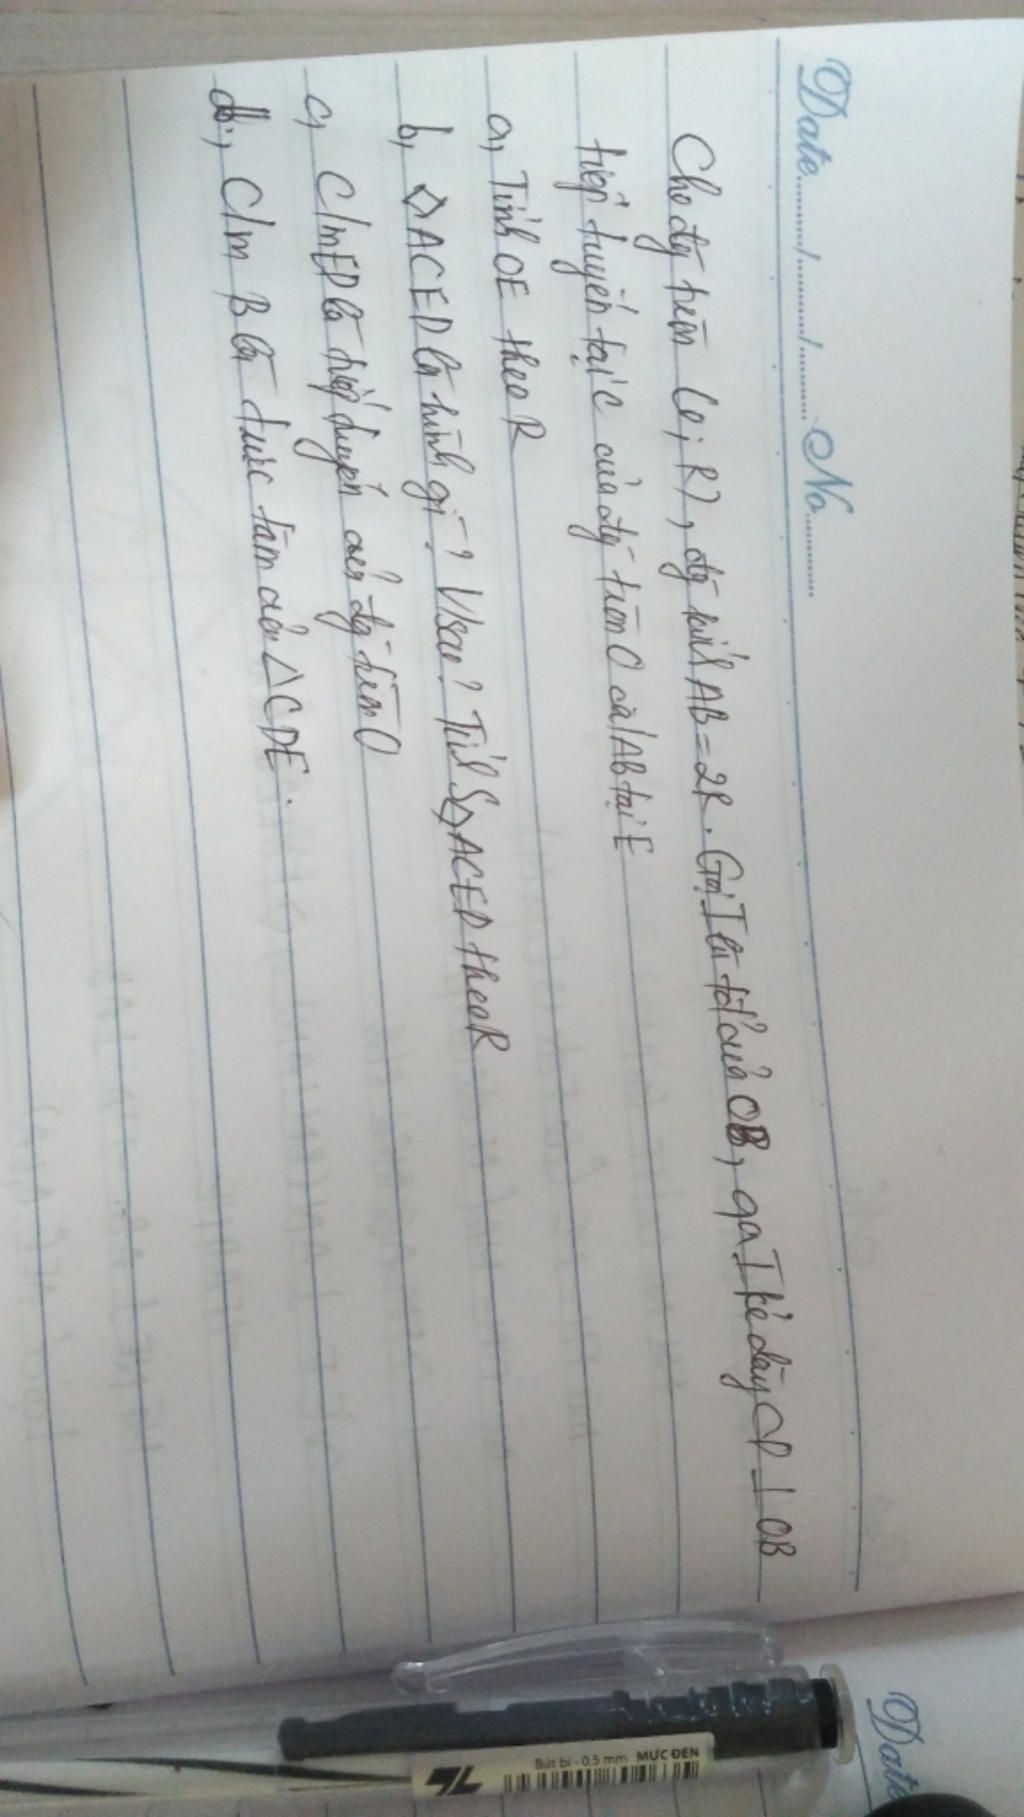 Date......./......./....... No..........
Cho đg tròn (O; R), đg kính AB = 2R. Gọi I là tđ của OB, qua I kẻ dây CD ⊥ OB
tiếp tuyến tại C của đg tròn O cắt AB tại E
a, Tính OE theo R
b, ◇ACED là hình gì? Vì sao? Tính S◇ACED theo R
c, C/m ED là tiếp tuyến của đg tròn O
d, C/m B là trực tâm của △CDE.
Date
Bút bi - 0.5 mm MỰC ĐEN
TL